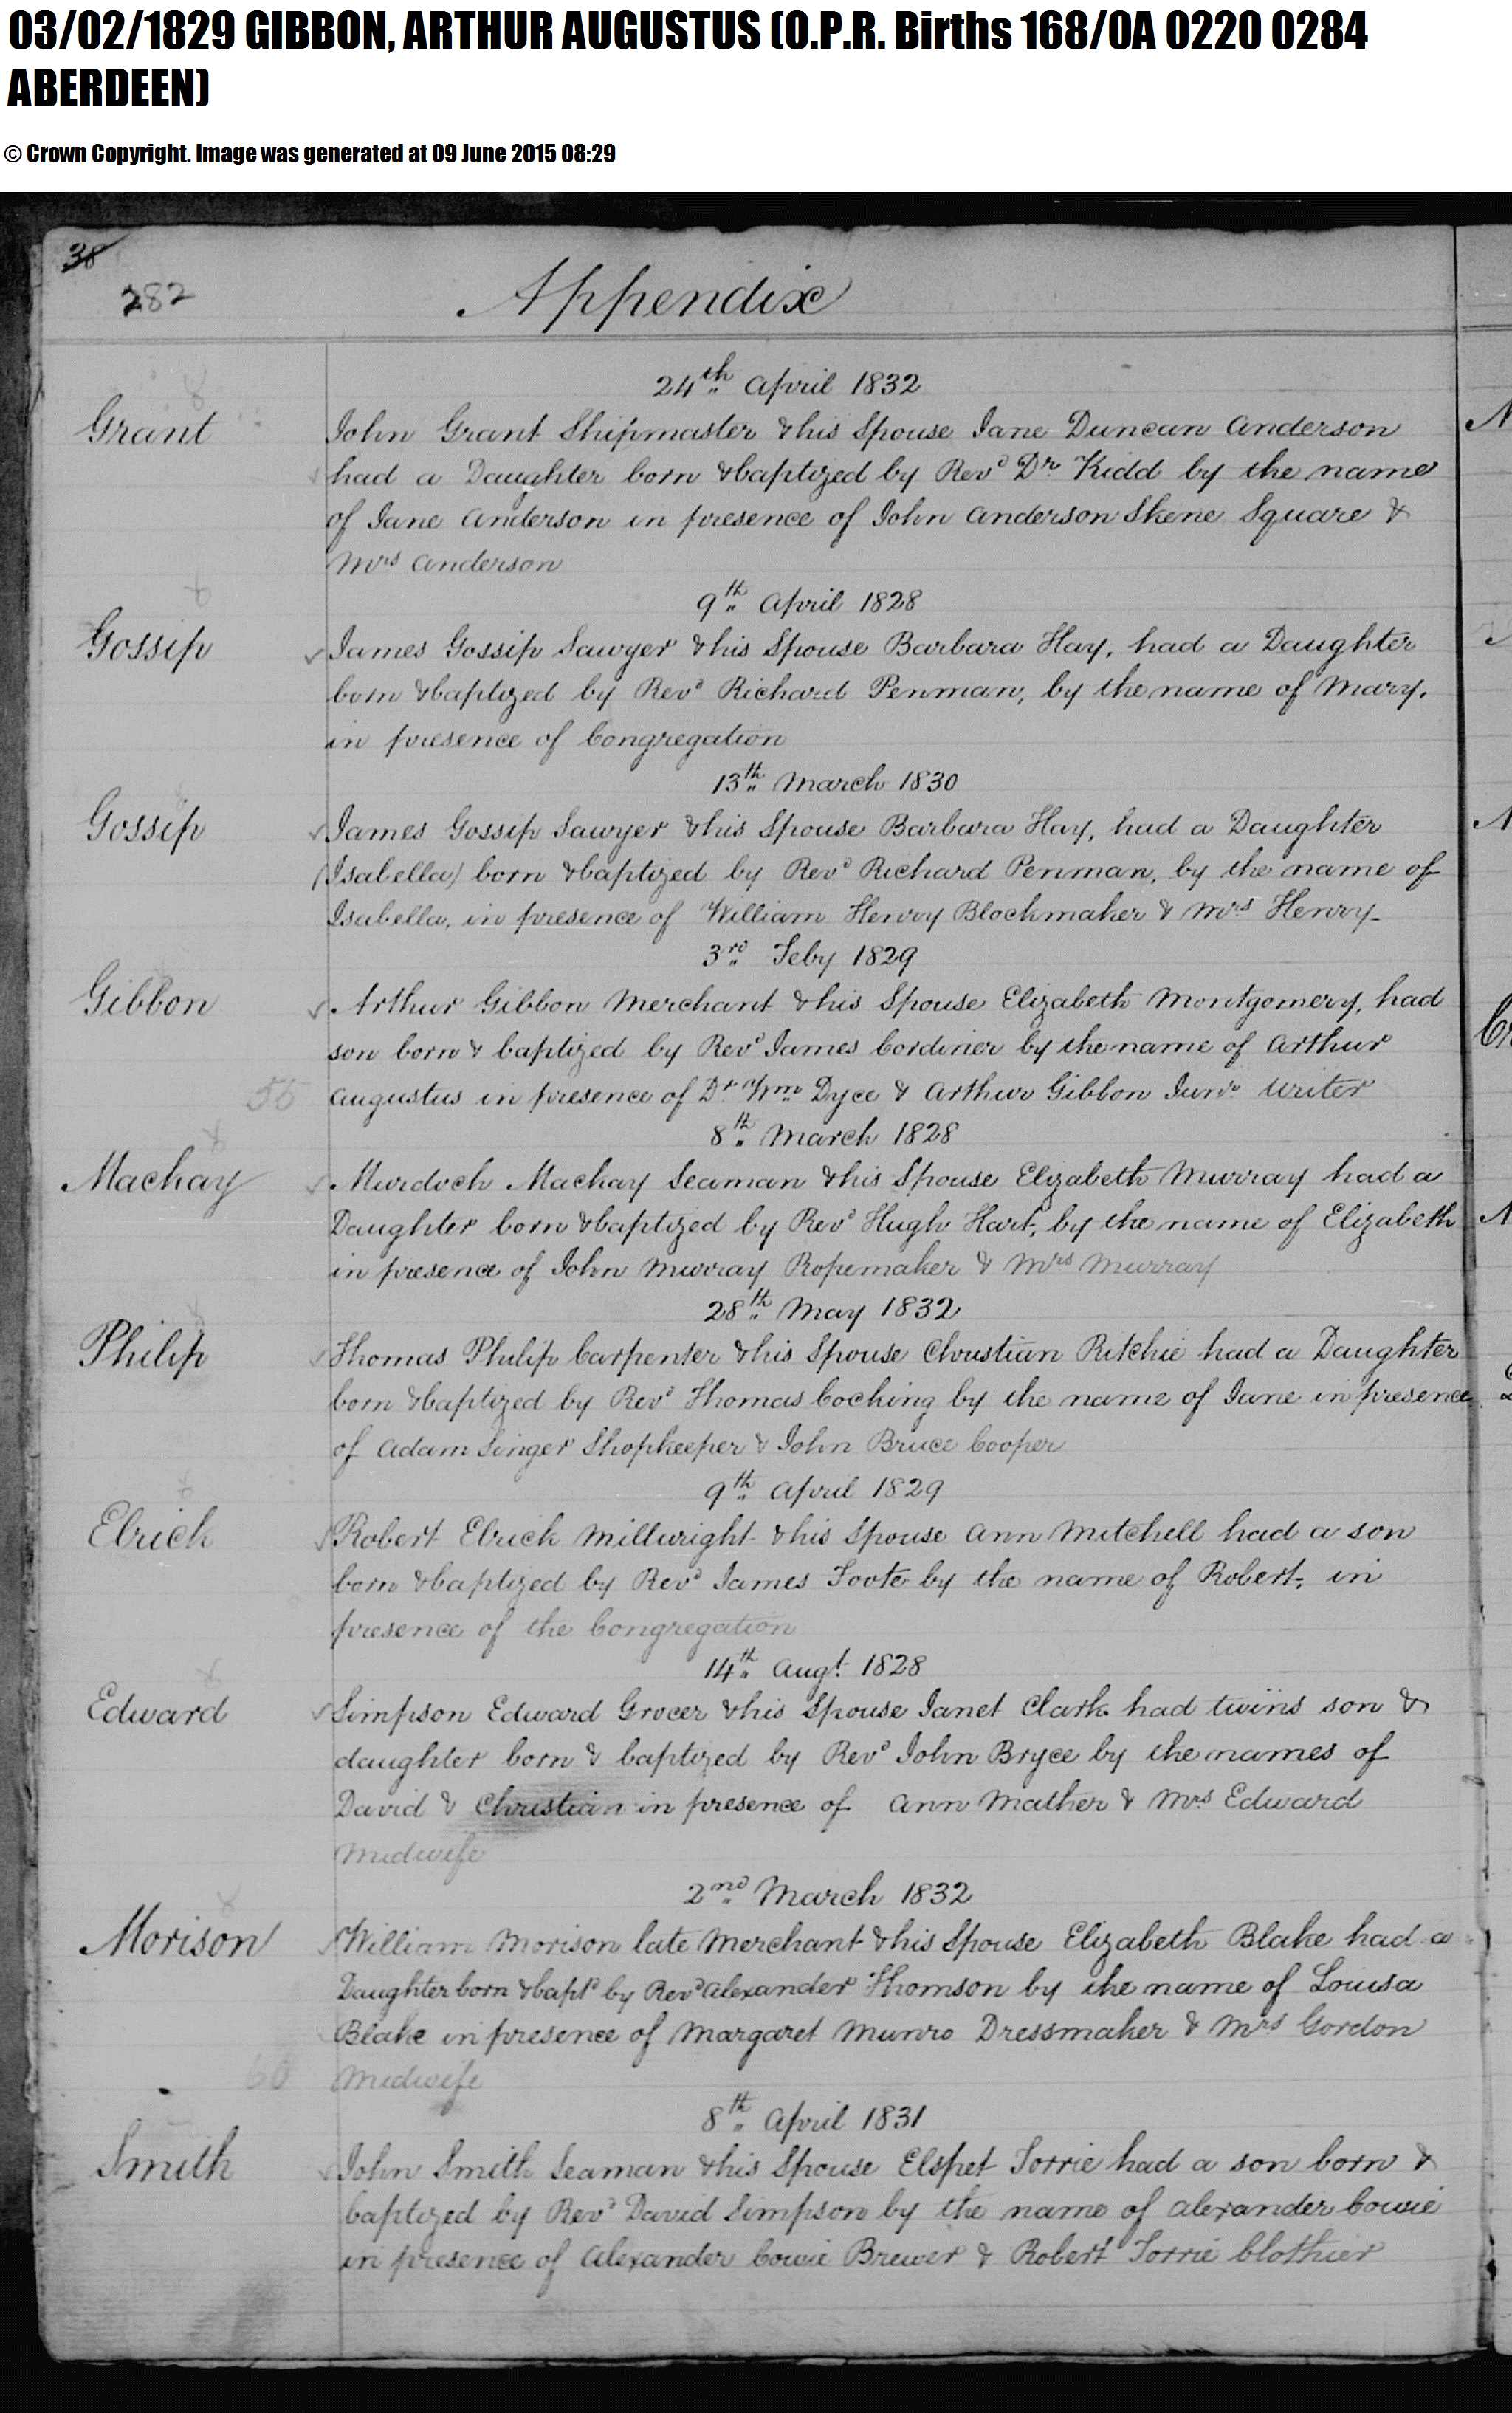 03/02/1829 GIBBON, ARTHUR AUGUSTUS (O.P.R. Births 168/0A 0220 0284
ABERDEEN)
© Crown Copyright. Image was generated at 09 June 2015 08:29
38
282
Appendix
24th April 1832
Grant
John Grant Shipmaster & his Spouse Jane Duncan Anderson
had a Daughter born & baptized by Revd Dr Kidd by the name
of Jane Anderson in presence of John Anderson Skene Square &
Mrs Anderson
9th April 1828
Gossip
James Gossip Sawyer & his Spouse Barbara Hay, had a Daughter
born & baptized by Revd Richard Penman, by the name of Mary,
in presence of Congregation
13th March 1830
Gossip
James Gossip Sawyer & his Spouse Barbara Hay, had a Daughter
(Isabella) born & baptized by Revd Richard Penman, by the name of
Isabella, in presence of William Henry Blockmaker & Mrs Henry
3rd Feby 1829
Gibbon
Arthur Gibbon Merchant & his Spouse Elizabeth Montgomery, had
son born & baptized by Revd James Cordiner by the name of Arthur
55 Augustus in presence of Dr Wm Dyce & Arthur Gibbon Junr Writer
8th March 1828
Mackay
Murdoch Mackay Seaman & his Spouse Elizabeth Murray had a
Daughter born & baptized by Revd Hugh Hart, by the name of Elizabeth
in presence of John Murray Ropemaker & Mrs Murray
28th May 1832
Philip
Thomas Philip Carpenter & his Spouse Christian Ritchie had a Daughter
born & baptized by Revd Thomas Cocking by the name of Jane in presence
of Adam Singer Shopkeeper & John Bruce Cooper
9th April 1829
Elrick
Robert Elrick Millwright & his Spouse Ann Mitchell had a son
born & baptized by Revd James Foote by the name of Robert, in
presence of the Congregation
14th Augt 1828
Edward
Simpson Edward Grocer & his Spouse Janet Clark had twins son &
daughter born & baptized by Revd John Bryce by the names of
David & Christian in presence of Ann Mather & Mrs Edward
Midwife
2nd March 1832
Morison
William Morison late Merchant & his Spouse Elizabeth Blake had a
Daughter born & bapt by Revd Alexander Thomson by the name of Louisa
Blake in presence of Margaret Munro Dressmaker & Mrs Gordon
60 Midwife
8th April 1831
Smith
John Smith Seaman & his Spouse Elspet Torrie had a son born &
baptized by Revd David Simpson by the name of Alexander Cowie
in presence of Alexander Cowie Brewer & Robert Torrie Clothier